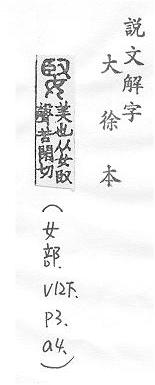 說文解字
大徐本
婜
美也从女臤
聲苦閑切
(女部. V12下. P3. a4.)